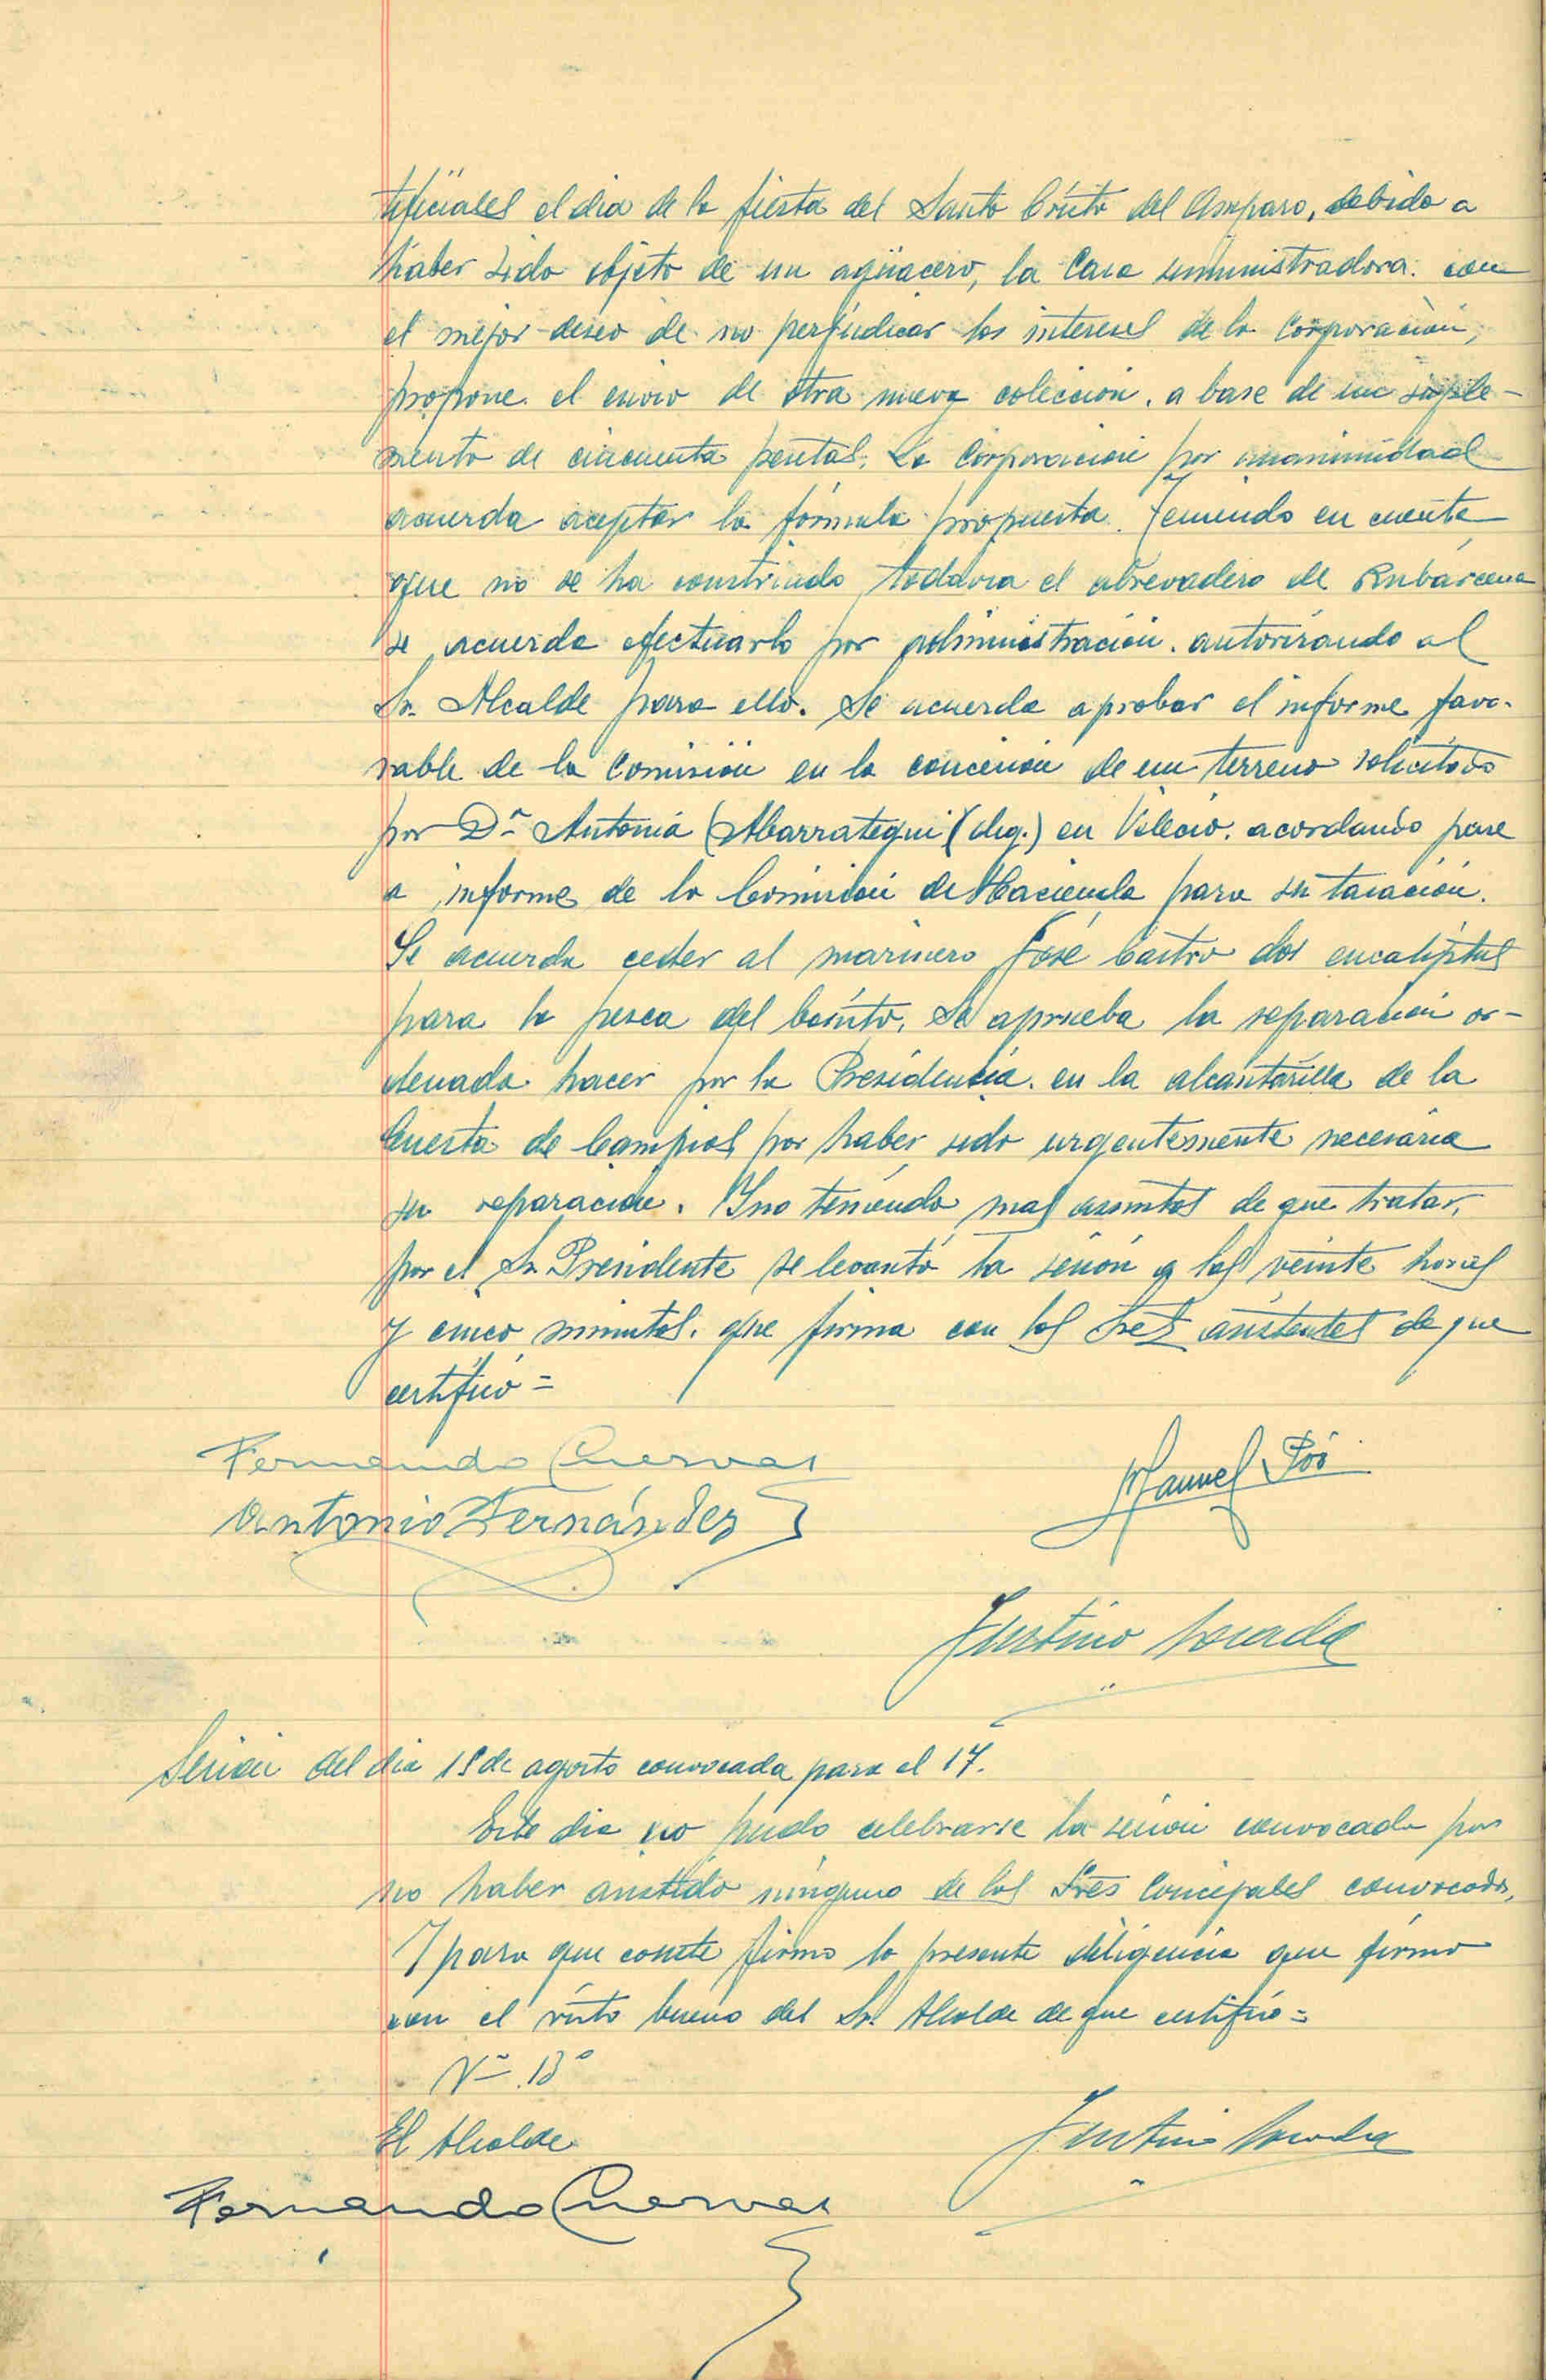 tificiales el dia de la fiesta del Santo Cristo del Amparo, debido a
haber sido objeto de un agüacero, la Casa suministradora. con
el mejor deseo de no perjudicar los intereses de la Corporación,
propone. el envio de otra nueva colección, a base de un suple-
mento de cincuenta pesetas. La Corporación por unanimidad
acuerda aceptar la fórmula propuesta. Teniendo en cuenta
que no se ha construido todavia el abrevadero de Rubárcena
se acuerda efectuarlo por administración. autorizando al
Sr. Alcalde para ello. Se acuerda aprobar el informe favo-
rable de la Comisión en la concesión de un terreno solicitado
por Dª Antonia Abarrategui (dig.) en acordando pase
a informe de la Comisión de Hacienda para su tasación.
Se acuerda ceder al marinero José Castro dos eucaliptus
para la pesca del bonito. Se aprueba la reparación or-
denada hacer por la Presidencia. en la alcantarilla de la
Cuesta de Campios por haber sido urgentemente necesaria
su reparación. Y no teniendo mas asuntos de que tratar,
por el Sr. Presidente se levantó la sesión a las veinte horas
y cinco minutos. que firma con los Sres asistentes de que
certifico =
Fernando Cuervas
Manuel Póo
Antonio Fernández
Justino Losada
Sesión del dia 15 de agosto convocada para el 17.
Este dia no pudo celebrarse la sesión convocada por
no haber asistido ninguno de los Sres Concejales convocados.
Y para que conste firmo la presente diligencia que firmo
con el visto bueno del Sr. Alcalde de que certifico =
Vº Bº
El Alcalde
Justino Losada
Fernando Cuervas